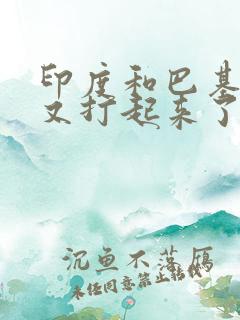 印度和巴基
又打起来了
沉鱼不落雁
未经同意禁止转载